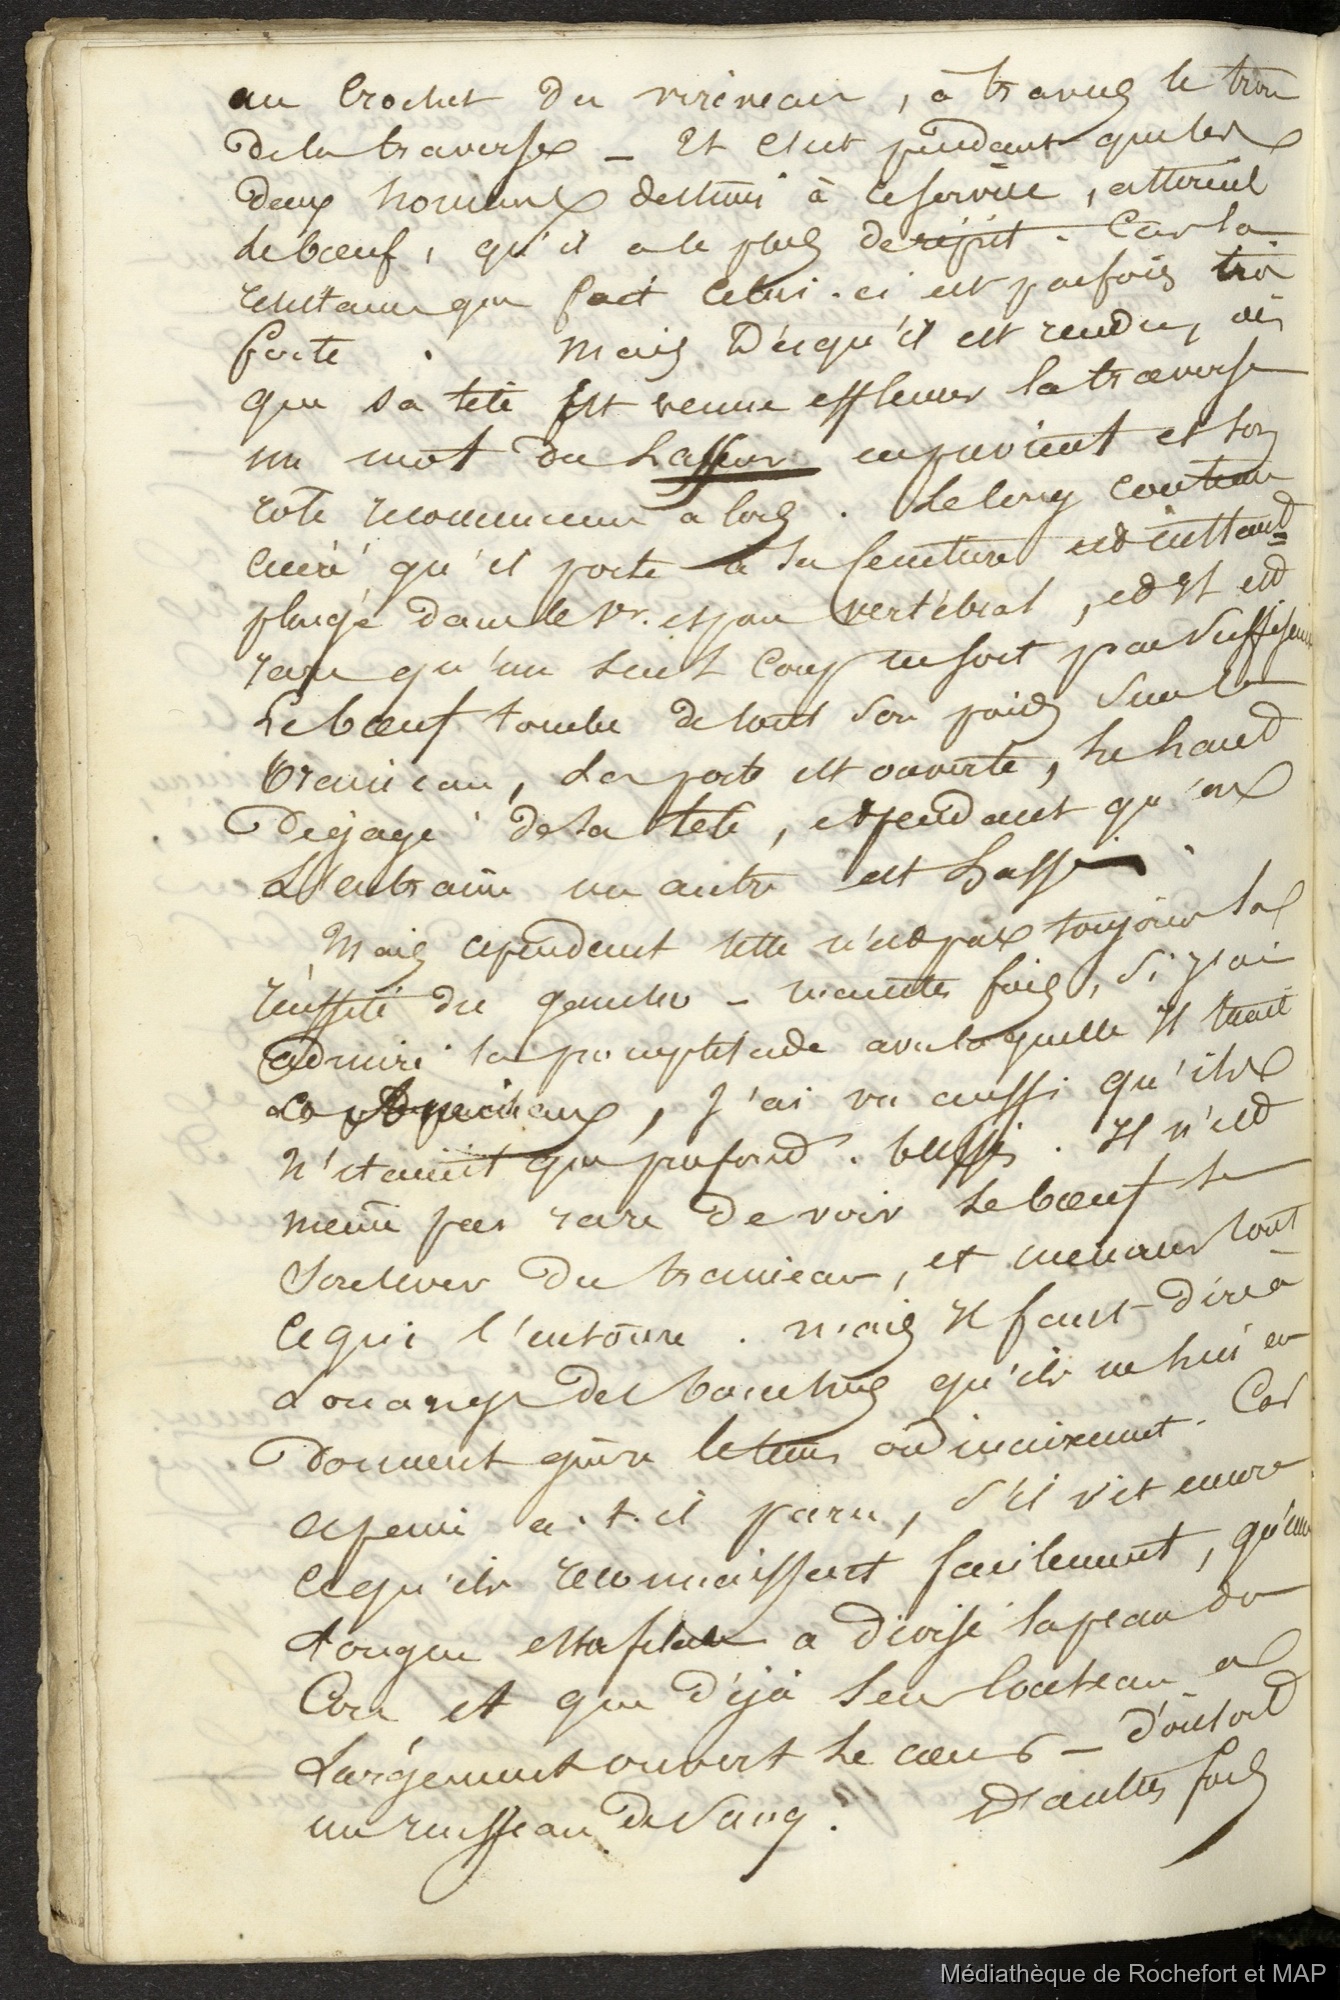 au Crochet du vireveau, à travers le trou
de la traverse _ Et c'est pendant que les
deux hommes destinés à ce service, attirent
le bœuf, qu'il a le plus de répit. Car la
résistance que fait celui-ci est parfois très
forte. Mais dès qu'il est rendu, dès
que sa tête est venue effleurer la traverse
un mot du Lasseur en prévient et son
role recommence alors. Le long couteau
acéré qu'il porte à sa ceinture est à l'instant
plongé dans le 1er. espace vertébral, et Il est
rare qu'un seul coup ne soit pas suffisant
Le bœuf tombe de tout son poids sur le
traineau, La porte est ouverte, le
dégagé de sa tête, et pendant qu'on
L'entraine un autre est Lassé.
Mais cependant telle n'est pas toujours la
réussite du gaucho _ maintes fois, Si j'ai
admiré la promptitude avec laquelle Il tuait
ces animaux, J'ai vu aussi qu'ils
n'étaient que profond. blessés. Il n'est
même pas rare de voir Le bœuf se
soulever du traineau, et menacer tout
ce qui l'entoure. mais Il faut dire à
Louange des bouchers qu'ils ne lui en
donnent guère le tems ordinairement. Car
à peine a-t-il paru, S'il vit encore
ce qu'ils reconnaissent facilement, qu'une
Longue estafilade a divisé la peau du
Cou et que déjà leur couteau a
Largement ouvert le cœur _ d'où sort
un ruisseau de Sang. D'autres fois
Médiathèque de Rochefort et MAP